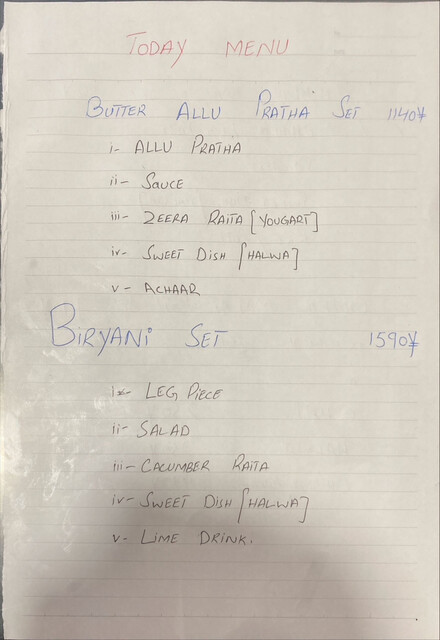 TODAY MENU
BUTTER ALLU PRATHA SET 1140¥
i- ALLU PRATHA
ii- SAUCE
iii- ZEERA RAITA [YOUGART]
iv- SWEET DISH [HALWA]
v- ACHAAR
BIRYANI SET 1590¥
i- LEG PIECE
ii- SALAD
iii- CACUMBER RAITA
iv- SWEET DISH [HALWA]
v- LIME DRINK.